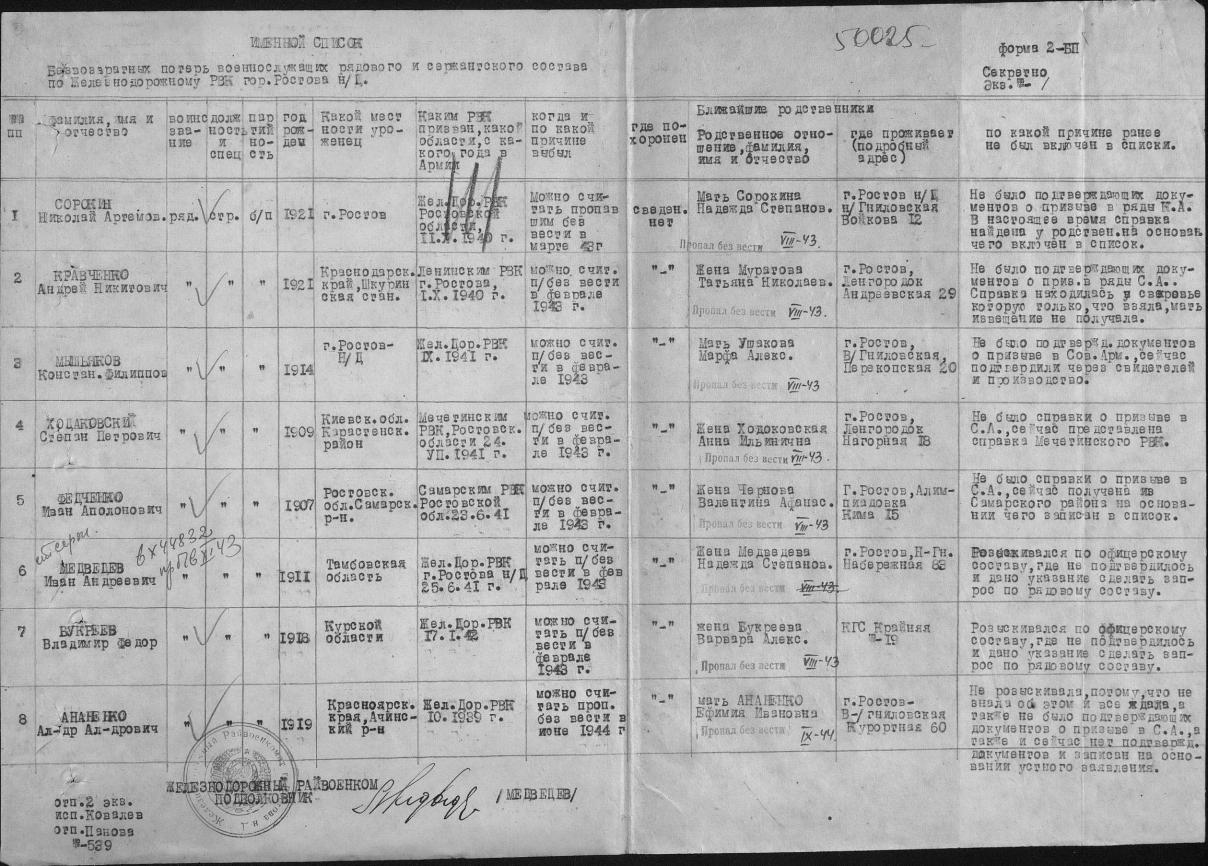 50025
форма 2-БП
Секретно
Экз.№-1
ИМЕННОЙ СПИСОК
Безвозвратных потерь военнослужащих рядового и сержантского состава
по Железнодорожному РВК гор.Ростова н/Д.
№№ пп
фамилия,имя и отчество
воинс зва- ние
долж ность и спец
пар тий но- сть
год рож- дем
Какой мест ности уро- женец
Каким РВК призван,какой области,с ка- кого года в Армии
когда и по какой причине выбыл
где по- хоронен
Ближайшие родственники
Родственное отно- шение,фамилия, имя и отчество
где проживает (подробный адрес)
по какой причине ранее не был включен в списки.
I
СОРОКИН
Николай Артемов.
ряд.
стр.
б/п
1921
г.Ростов
Жел.Дор.РВК
Ростовской
области,
1940 г.
Можно счи-
тать пропав
шим без
вести в
марте 43г
сведен.
нет
Мать Сорокина
Надежда Степанов.
Пропал без вести VIII-43.
г.Ростов н/Д
н/Гниловская
Войкова 12
Не было подтверждающих доку-
ментов о призыве в ряды К.А.
В настоящее время справка
найдена у родствен.на основан
чего включен в список.
2
КРАВЧЕНКО
Андрей Никитович
"
"
"
1921
Краснодарск.
край,Шкурин
ская стан.
Ленинским РВК
г.Ростова,
I.X.1940 г.
можно счит.
п/без вести
в феврале
1943 г.
"-"
Жена Муратова
Татьяна Николаев.
Пропал без вести VIII-43.
г.Ростов,
Ленгородок
Андреевская 29
Не было подтверждающих доку-
ментов о приз.в ряды С.А..
Справка находилась у свекровье
которую только,что взяла,мать
извещение не получала.
3
МЫШЬЯКОВ
Констан.Филиппов
"
"
"
1914
г.Ростов-
Н/Д
Жел.Дор.РВК
IX.1941 г.
можно счит.
п/без вес-
ти в февра-
ле 1943
"-"
Мать Ушакова
Марфа Алекс.
Пропал без вести VIII-43
г.Ростов,
В/Гниловская,
Перекопская 20
Не было подтвержд.документов
о призыве в Сов.Арм.,сейчас
подтвердили через свидетелей
и производство.
4
ХОДАКОВСКИЙ
Степан Петрович
"
"
"
1909
Киевск.обл.
Карастенск.
район
Мечетинским
РВК,Ростовск.
области 24.
УП.1941 г.
можно счит.
п/без вес-
ти в февра-
ле 1943 г.
"-"
Жена Ходоковская
Анна Ильинична
Пропал без вести VIII-43.
г.Ростов,
Ленгородок
Нагорная 18
Не было справки о призыве в
С.А.,сейчас представлена
справка Мечетинского РВК.
5
ФЕДЧЕНКО
Иван Аполонович
"
"
"
1907
Ростовск.
обл.Самарск.
р-н.
Самарским РВК
Ростовской
обл.23.6.41
можно счит.
п/без вес-
ти в февра-
ле 1943 г.
"-"
Жена Чернова
Валентина Афанас.
Пропал без вести VIII-43
Г.Ростов,Алим-
пиадовка
Кима 15
Не было справки о призыве в
С.А.,сейчас получена из
Самарского района на основа-
нии чего записан в список.
вх44832
6
МЕДВЕДЕВ
Иван Андреевич
"
"
"
1911
Тамбовская
область
Жел.Дор.РВК
г.Ростова н/Д
25.6.41 г.
можно счи-
тать п/без
вести в фев
рале 1943
"-"
Жена Медведева
Надежда Степанов.
Пропал без вести VIII-43
г.Ростов,Н-Гн.
Набережная 83
Розыскивался по офицерскому
составу,где не подтвердилось
и дано указание сделать зап-
рос по рядовому составу.
7
БУКРЕЕВ
Владимир Федор
"
"
"
1918
Курской
области
Жел.Дор.РВК
17.I.42
можно счи-
тать п/без
вести в
феврале
1943 г.
"-"
жена Букреева
Варвара Алекс.
Пропал без вести VIII-43
КГС Крайняя
№-19
Розыскивался по офицерскому
составу,где не подтвердилось
и дано указание сделать зап-
рос по рядовому составу.
8
АНАНЕНКО
Ал-др Ал-дрович
"
"
"
1919
Красноярск.
края,Ачинс-
кий р-н
Жел.Дор.РВК
10.1939 г.
можно счи-
тать проп.
без вести в
июне 1944 г
"-"
мать АНАНЕНКО
Ефимия Ивановна
Пропал без вести IX-44.
г.Ростов-
В-/гниловская
Курортная 60
Не розыскивала,потому,что не
знала об этом и все ждала,а
также не было подтверждающих
документов о призыве в С.А.,а
также и сейчас нет подтвержд.
документов и записан на осно-
вании устного заявления.
ЖЕЛЕЗНОДОРОЖНЫЙ РАЙВОЕНКОМ
ПОДПОЛКОВНИК
/МЕДВЕДЕВ/
отп.2 экз.
исп.Ковалев
отп.Панова
№-539